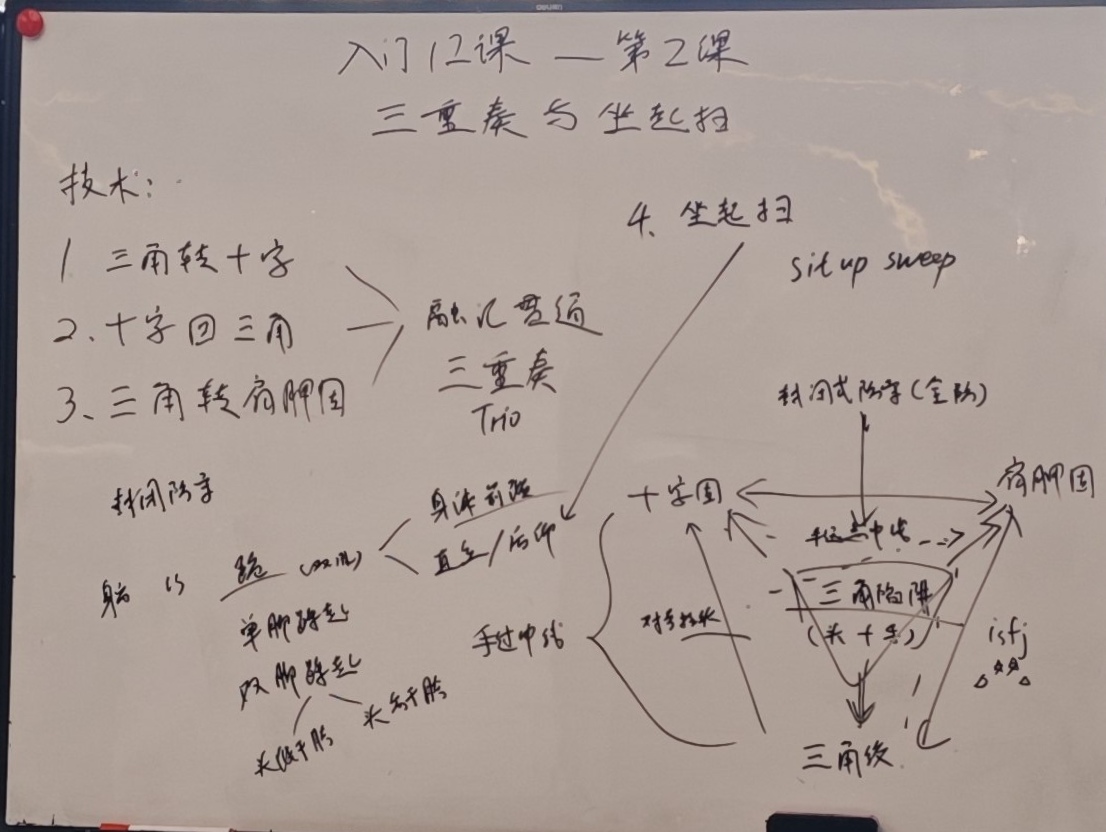 入门12课 — 第2课
三重奏与坐起扫
技术:
1 三角转十字
2、十字回三角
3、三角转肩胛固
融汇贯通
三重奏
Trio
4、坐起扫
sit up sweep
封闭防守
跪(双腿)
身体前压
直立/后仰
单脚蹲起
双脚蹲起
头低于胯
头高于胯
手过中线
封闭式防守(全防)
十字固
肩胛固
手过中线
三角陷阱
(头+手)
对手抬头
isfj
三角绞